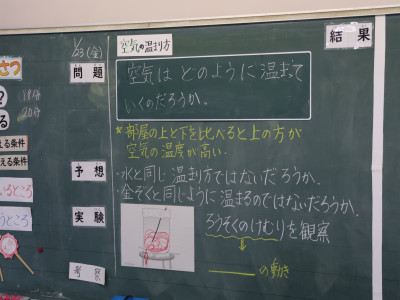 さつ
?
る
える条件
える条件
いるところ
うところ
1/23(金)
18分
20分
問題
予想
実験
考察
空気の温まり方
空気はどのように温まって
いくのだろうか。
*部屋の上と下を比べると上の方が
空気の温度が高い。
・水と同じ温まり方ではないだろうか。
・金ぞくと同じように温まるのではないだろうか。
ろうそくのけむりを観察
の動き
結果